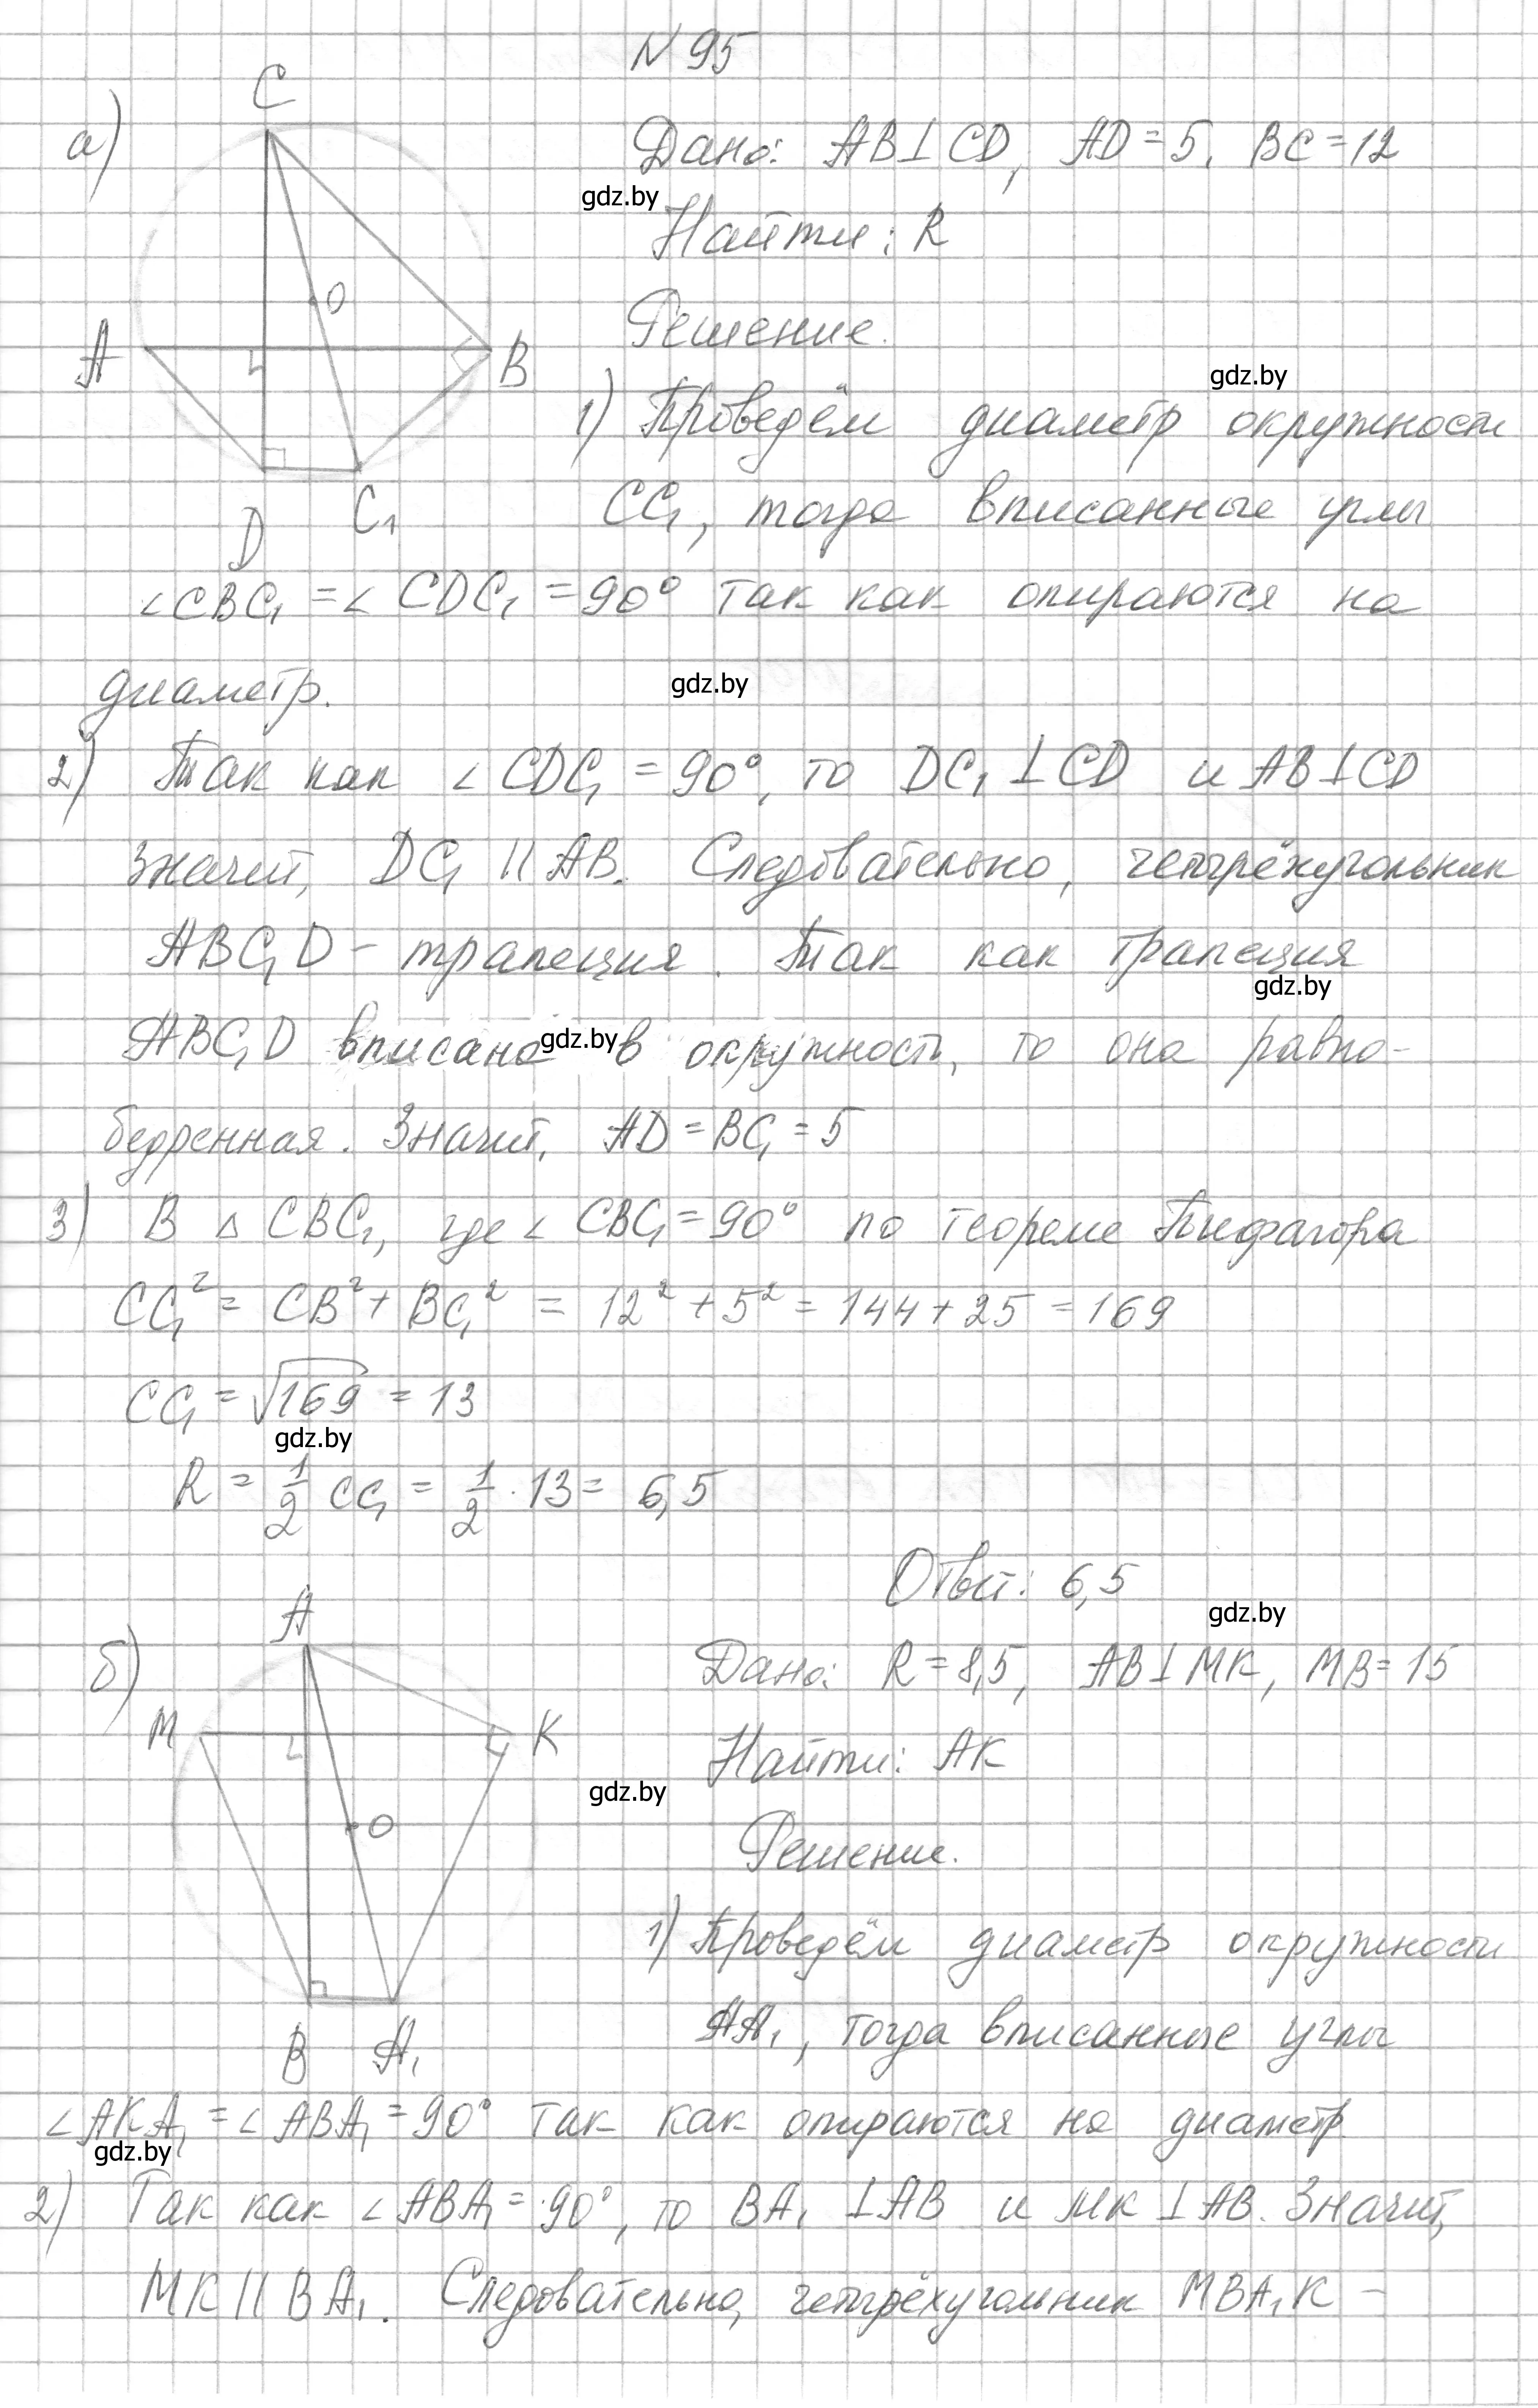 N 95
а)
C
O
A
B
D
C₁
Дано: AB⊥CD, AD=5, BC=12
gdz.by
Найти: R
Решение.
gdz.by
1) Проведём диаметр окружности
CC₁, тогда вписанные углы
∠CBC₁ = ∠CDC₁ = 90° так как опираются на
диаметр.
gdz.by
2) Так как ∠CDC₁ = 90°, то DC₁ ⊥ CD и AB⊥CD
значит, DC₁ || AB. Следовательно, четырёхугольник
ABC₁D - трапеция. Так как трапеция
gdz.by
ABC₁D вписана в окружность, то она равно-
gdz.by
бедренная. Значит, AD = BC₁ = 5
3) В △ CBC₁, где ∠CBC₁ = 90° по теореме Пифагора
CC₁² = CB² + BC₁² = 12² + 5² = 144 + 25 = 169
CC₁ = √169 = 13
gdz.by
R = 1/2 CC₁ = 1/2 · 13 = 6,5
Ответ: 6,5
gdz.by
б)
A
M
K
O
B
A₁
Дано: R = 8,5, AB⊥MK, MB = 15
Найти: AK
gdz.by
Решение.
1) Проведём диаметр окружности
AA₁, тогда вписанные углы
∠AKA₁ = ∠ABA₁ = 90° так как опираются на диаметр
gdz.by
2) Так как ∠ABA₁ = 90°, то BA₁ ⊥AB и MK ⊥AB. Значит,
MK || BA₁. Следовательно, четырёхугольник MBA₁K -